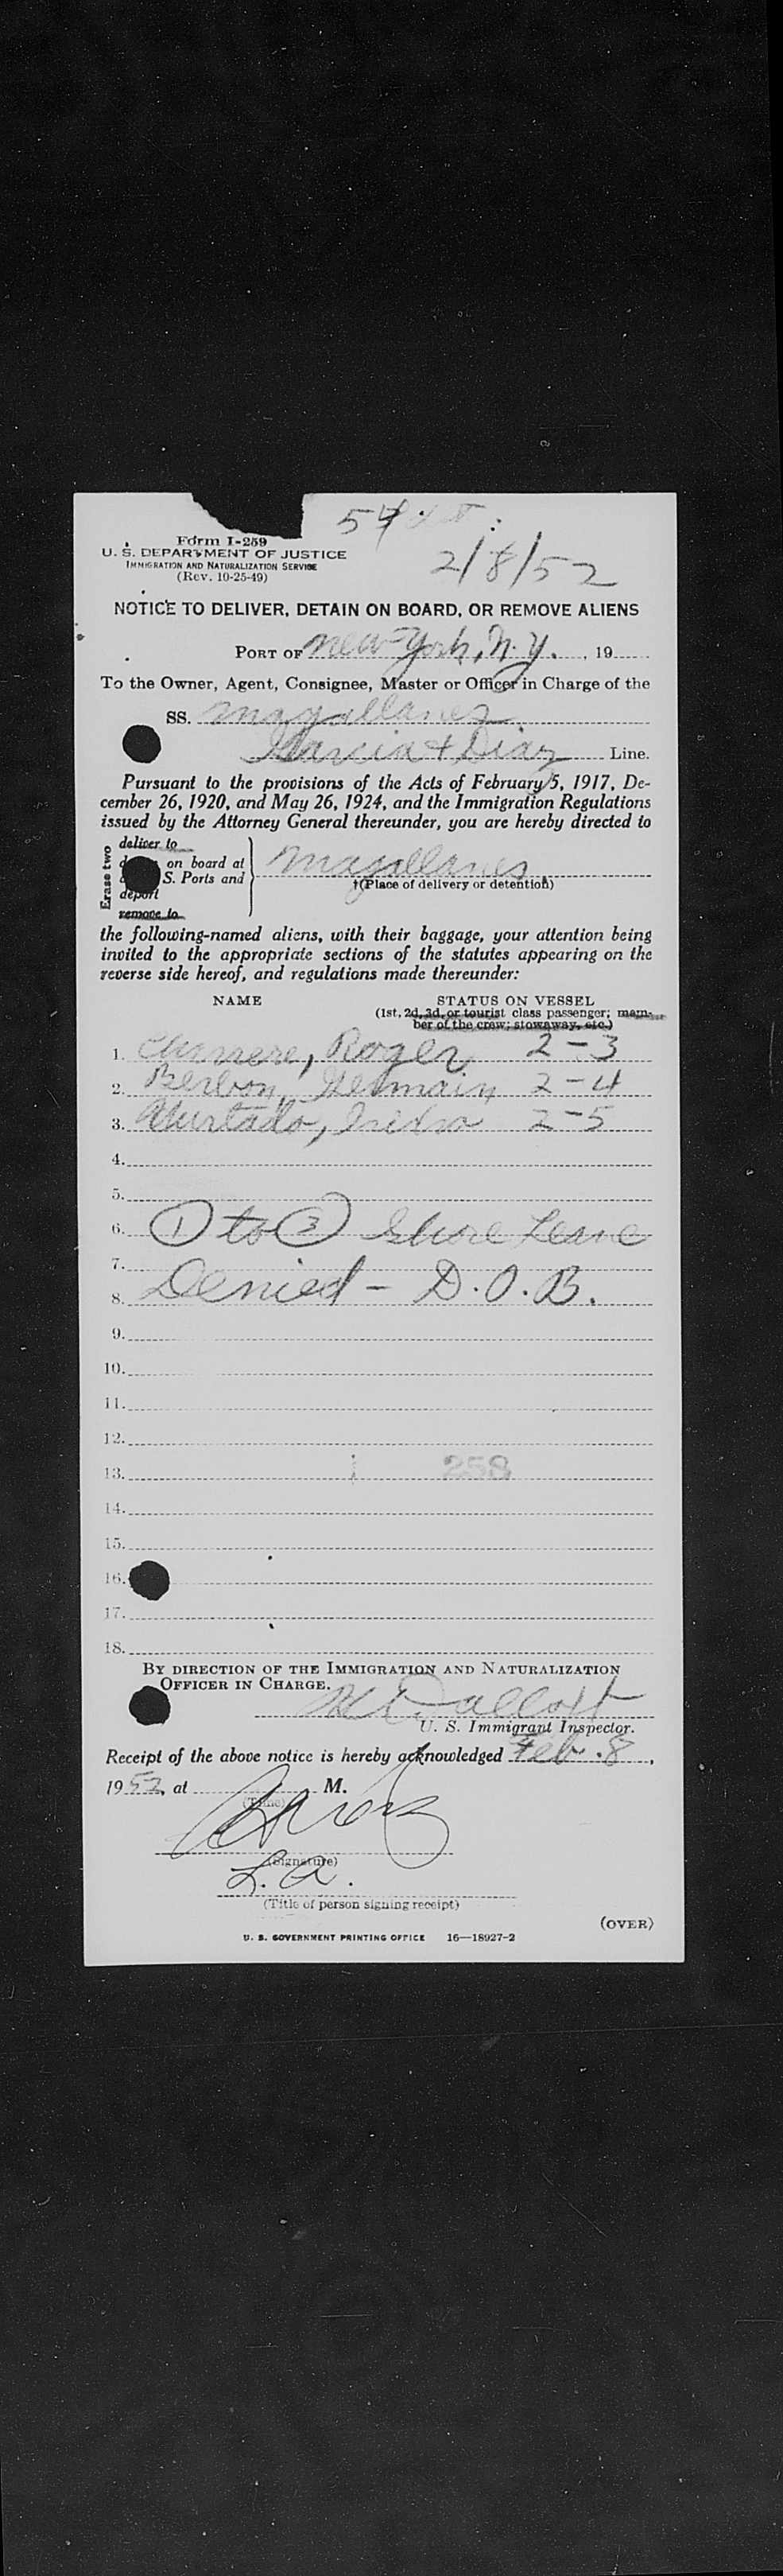 2/8/52
Form I-259
U. S. DEPARTMENT OF JUSTICE
IMMIGRATION AND NATURALIZATION SERVICE
(Rev. 10-25-49)
NOTICE TO DELIVER, DETAIN ON BOARD, OR REMOVE ALIENS
PORT OF New York, N. Y. , 19
To the Owner, Agent, Consignee, Master or Officer in Charge of the
SS. Magallanes
Garcia & Diaz Line.
Pursuant to the provisions of the Acts of February 5, 1917, De-
cember 26, 1920, and May 26, 1924, and the Immigration Regulations
issued by the Attorney General thereunder, you are hereby directed to
Erase two
deliver to
on board at
S. Ports and
deport
remove to
Magallanes
†(Place of delivery or detention)
the following-named aliens, with their baggage, your attention being
invited to the appropriate sections of the statutes appearing on the
reverse side hereof, and regulations made thereunder:
NAME STATUS ON VESSEL
(1st, 2d, 3d, or tourist class passenger; mem-
ber of the crew; stowaway, etc.)
1. Roger 2-3
2. Berbon, Germain 2-4
3. Hurtado, Isidro 2-5
4.
5.
6. (1) to (3) Shore Leave
7.
8. Denied - D.O.B.
9.
10.
11.
12.
13. 258
14.
15.
16.
17.
18.
BY DIRECTION OF THE IMMIGRATION AND NATURALIZATION
OFFICER IN CHARGE.
U. S. Immigrant Inspector.
Receipt of the above notice is hereby acknowledged Feb. 8,
1952, at M.
(Time)
(Signature)
L.A.
(Title of person signing receipt)
(OVER)
U. S. GOVERNMENT PRINTING OFFICE 16—18927-2